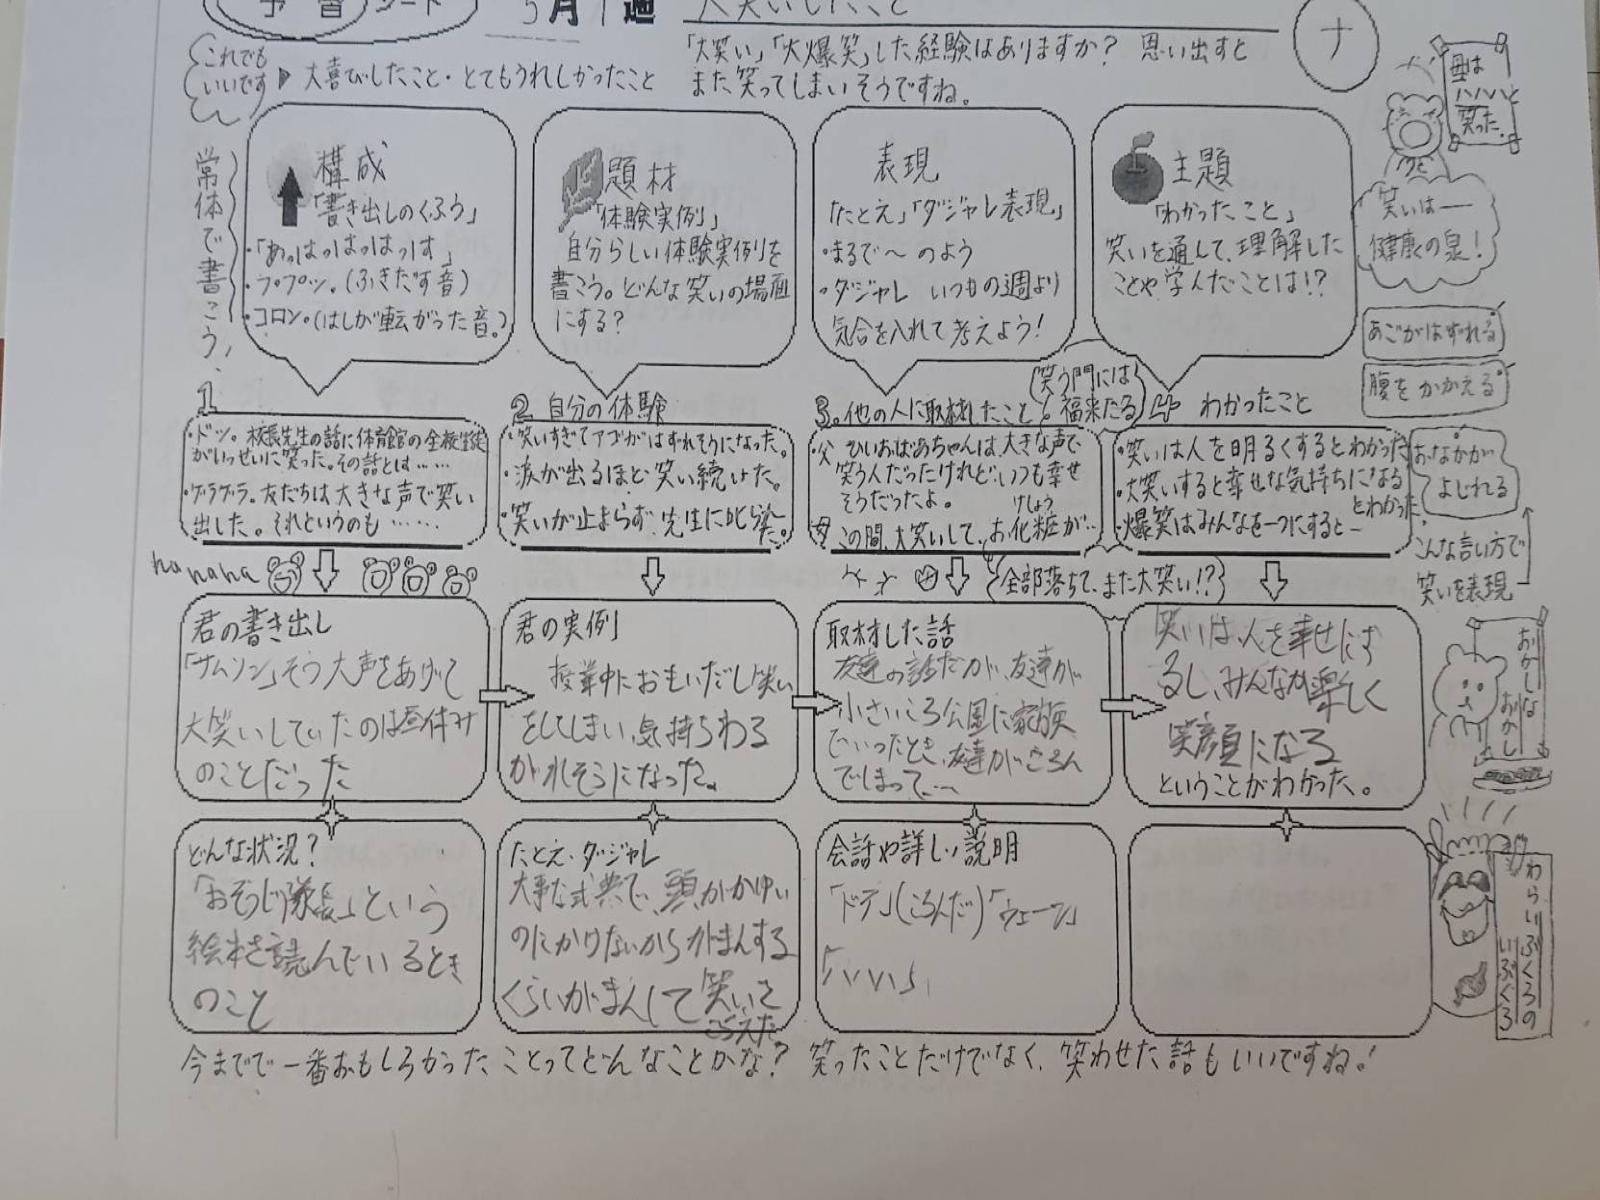 予習シート 5月1週 大笑いしたこと
ナ
これでも
いいです
大喜びしたこと・とてもうれしかったこと
「大笑い」「大爆笑」した経験はありますか？ 思い出すと
また笑ってしまいそうですね。
母は
ハハハハと
笑った。
常体で書こう、
構成
「書き出しのくふう」
・「あっはっはっはっはっす」
・フ°フ°ツ。(ふきだす音)
・コロン。(はしが転がった音。)
題材
「体験実例」
自分らしい体験実例を
書こう。どんな笑いの場面
にする？
表現
「たとえ」「ダジャレ表現」
・まるで〜のよう
・ダジャレ いつもの週より
気合を入れて考えよう！
主題
「わかったこと」
笑いを通して、理解した
ことや学んだことは!?
笑いは―
健康の泉！
あごがはずれる
腹をかかえる
おなかが
よじれる
こんな言い方で
笑いを表現
1
・ドッ。校長先生の話に体育館の全校生徒
がいっせいに笑った。その話とは……
・ゲラゲラ。友だちは大きな声で笑い
出した。それというのも……
2 自分の体験
・笑いすぎてアゴがはずれそうになった。
・涙が出るほど笑い続けた。
・笑いが止まらず、先生に叱られた。
3。他の人に取材したこと
笑う門には
福来たる
・父 ひいおばあちゃんは、大きな声で
笑う人だったけれど、いつも幸せ
そうだったよ。
母 この間、大笑いして、お化粧が‥
けしょう
全部落ちて、また大笑い!?
4 わかったこと
・笑いは人を明るくするとわかった
・大笑いすると幸せな気持ちになる
とわかった
・爆笑はみんなを一つにすると―
ha hahaha
君の書き出し
「サムソン」そう大声をあげて
大笑いしていたのは昼休み
のことだった
君の実例
授業中におもいだし笑い
をしてしまい、気持ちわる
がれそうになった。
取材した話
友達の話だが、友達が
小さいころ公園に家族
でいったとき、友達がころん
でしまって、…
笑いは、人を幸せにす
るし、みんなが楽しく
笑顔になる
ということがわかった。
おかしな
おかし
どんな状況？
「おぞうじ隊長」という
絵本を読んでいるとき
のこと
たとえ・ダジャレ
大事な式典で、頭がかゆい
のにかけないからがまんする
くらいがまんして笑いを
こらえた
会話や詳しい説明
「ドテ」(ころんだ)「ウェーン」
「ハハハ」
わらいぶくろの
いぶくろ
今までで一番おもしろかったことってどんなことかな？ 笑ったことだけでなく、笑わせた話もいいですね！